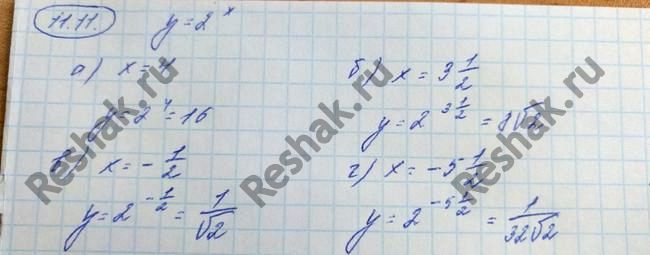 11.11. y = 2^x
а) x = 4
y = 2^4 = 16
б) x = 3 1/2
y = 2^{3 1/2} = 8√2
в) x = - 1/2
y = 2^{- 1/2} = 1/√2
г) x = -5 1/2
y = 2^{-5 1/2} = 1/32√2
Reshak.ru
Reshak.ru
Reshak.ru
Reshak.ru